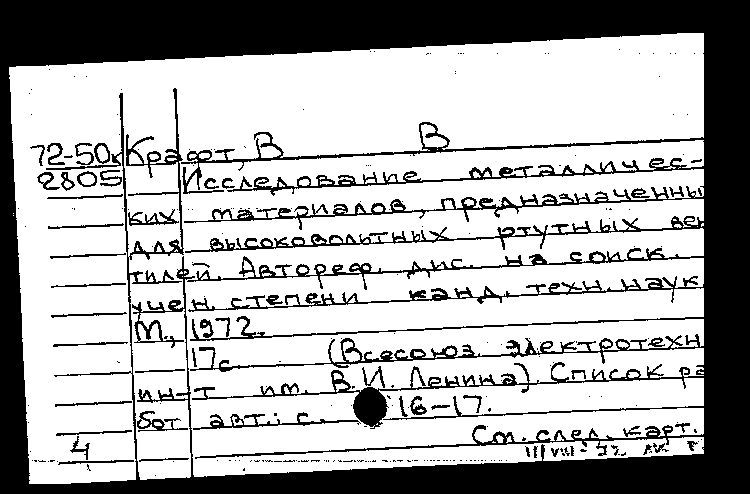 72-50к Крафт, В В
2805 Исследование металличес-
ких материалов, предназначенны
для высоковольтных ртутных вен
тилей. Автореф. дис. на соиск.
учен. степени канд. техн. наук.
М., 1972.
17с (Всесоюз. электротехн
ин-т им. В.И. Ленина). Список ра
бот авт.: с. 16-17.
4 См. след. карт.